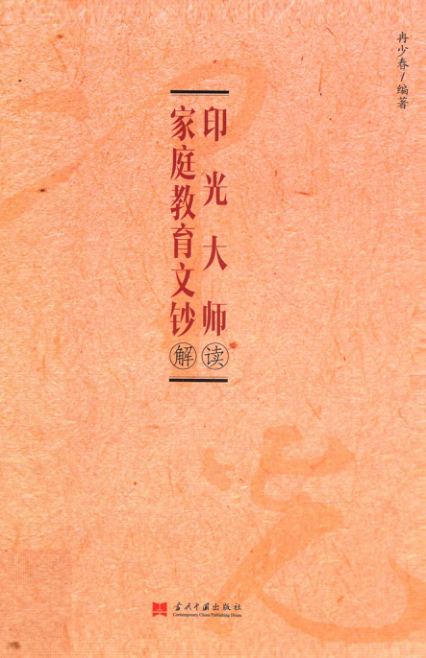 冉少春/编著
印光大师
家庭教育文钞
解读
当代中国出版社
Contemporary China Publishing House